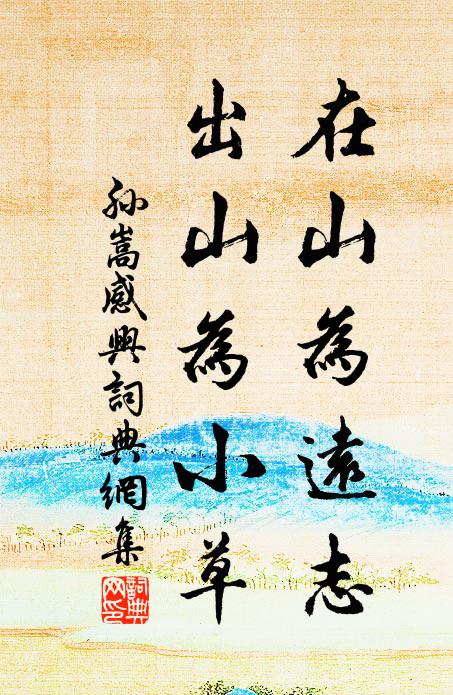 在山為遠志
出山為小草
孫嵩感興詞典網集